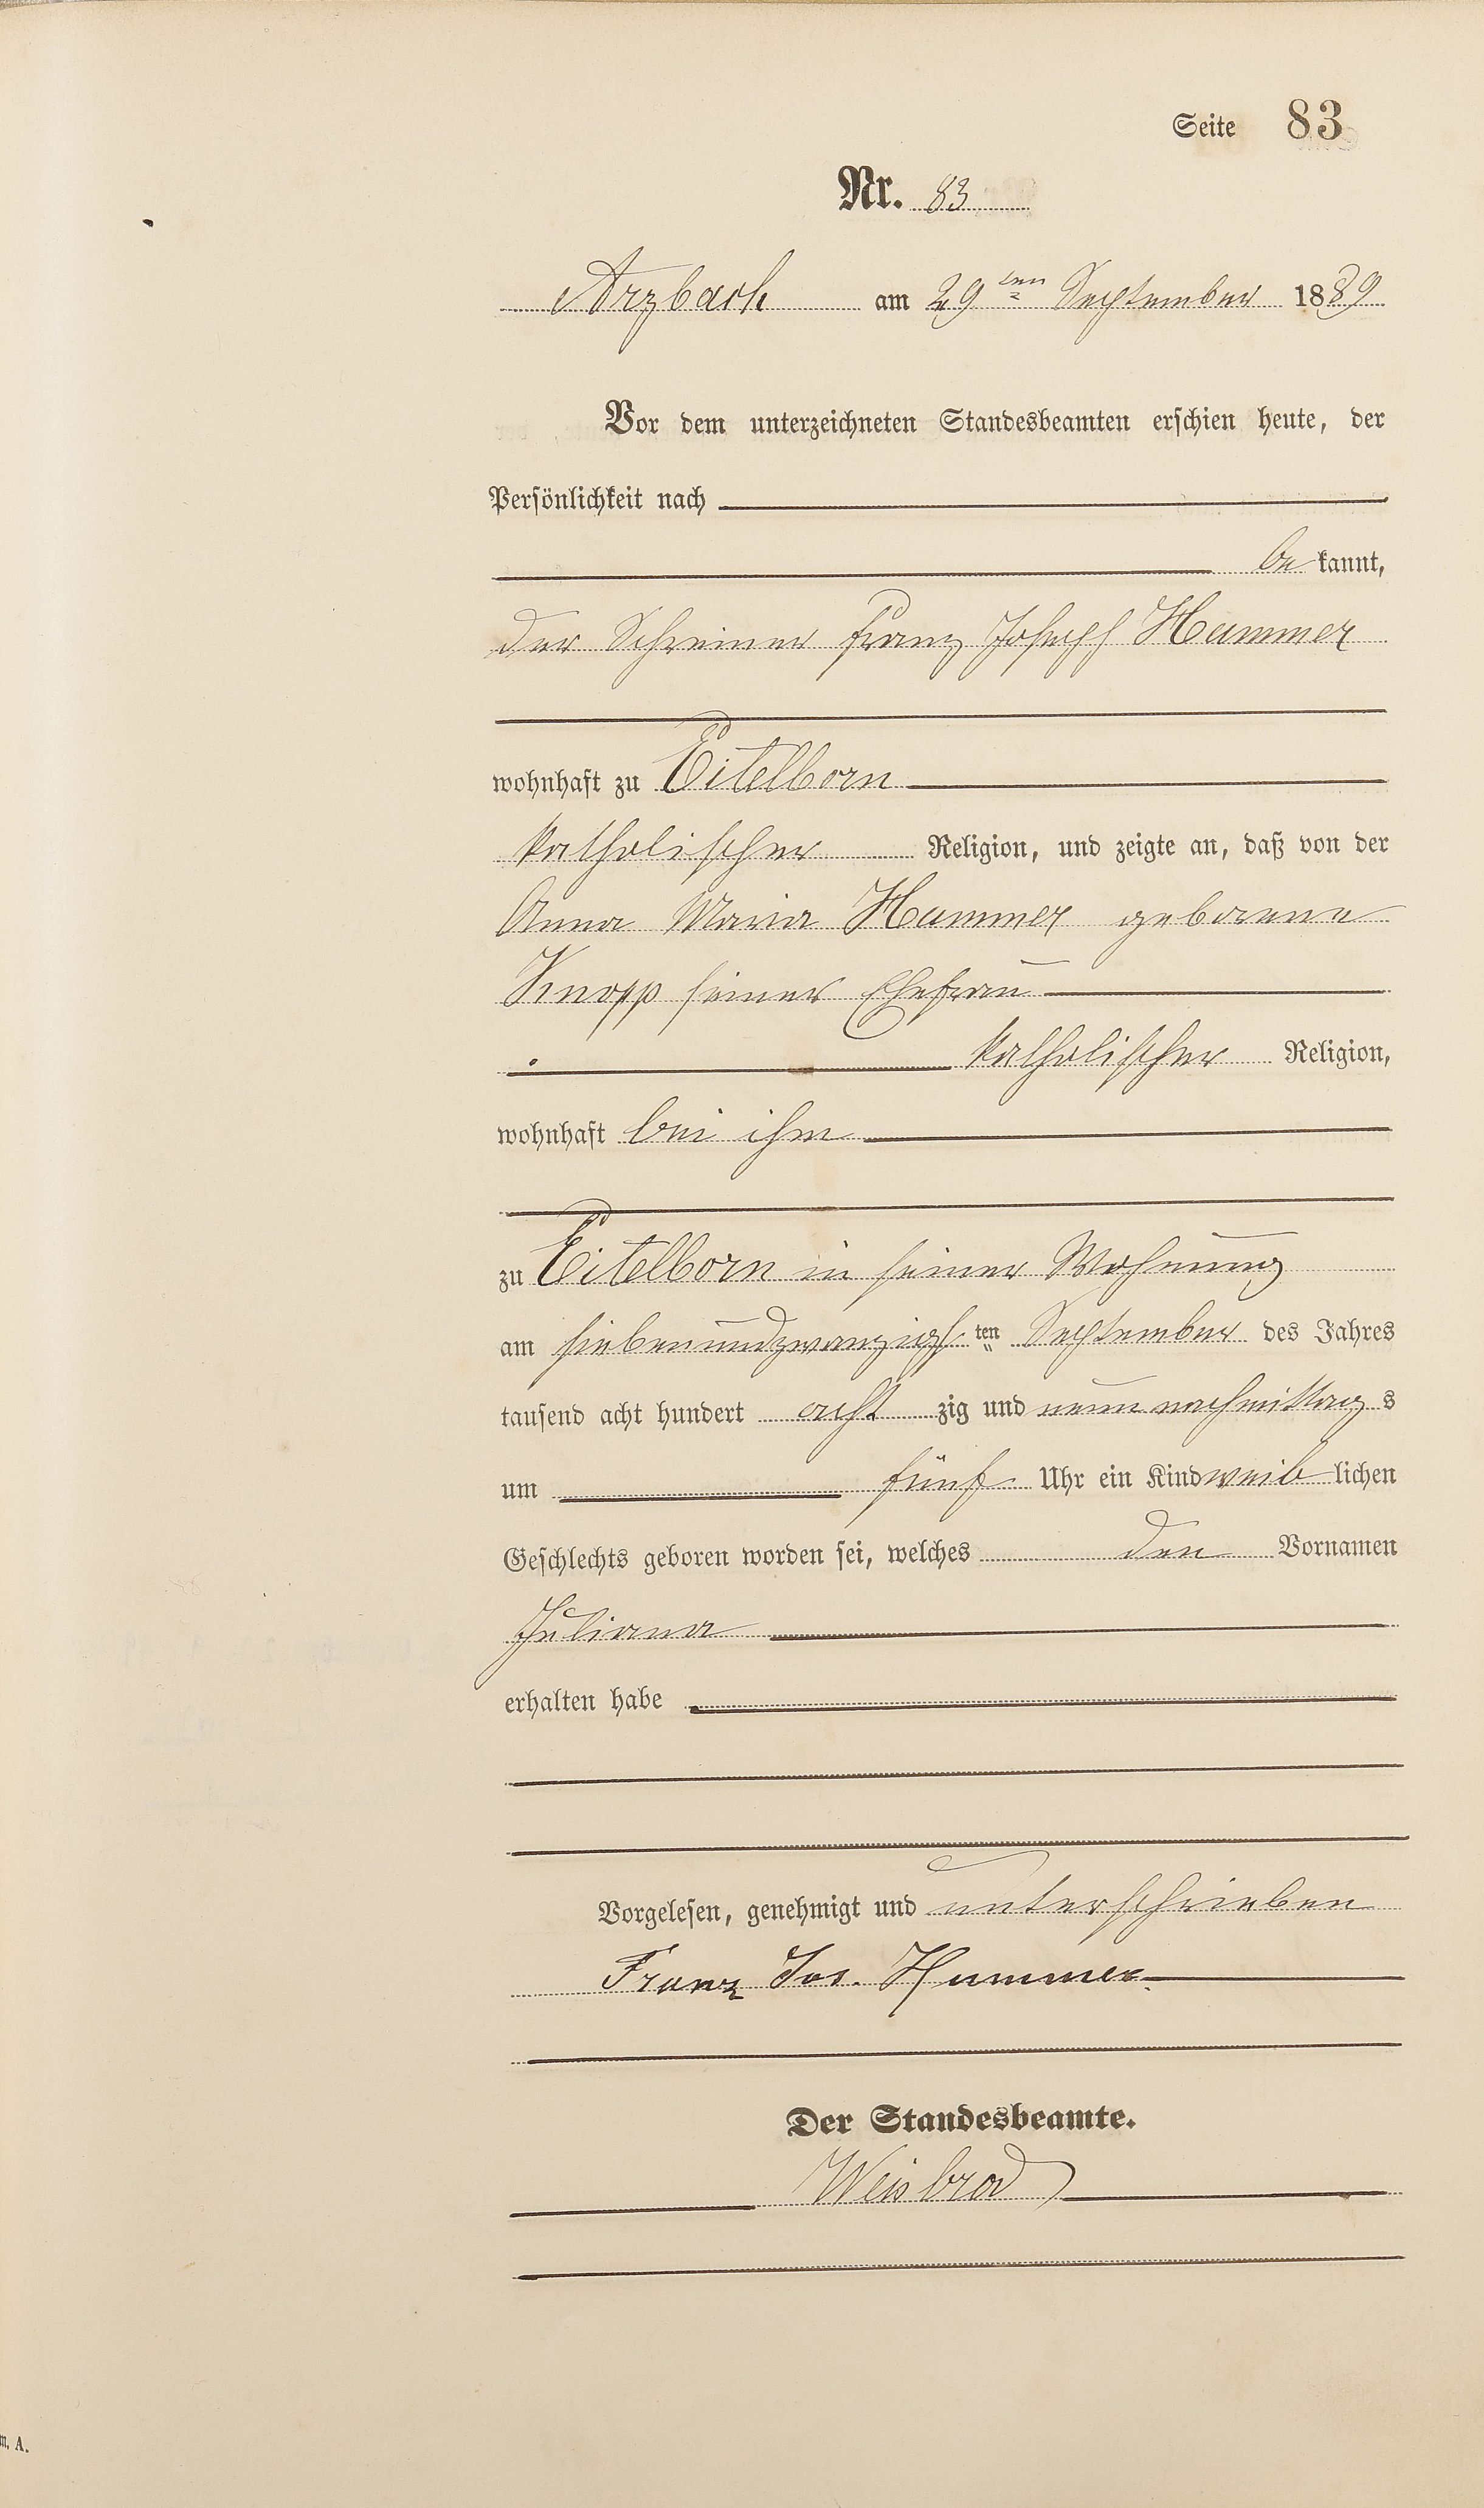 Seite 83
Nr. 83
Arzbach am 29ten September 1889
Vor dem unterzeichneten Standesbeamten erschien heute, der
Persönlichkeit nach
be kannt,
der Schreiner Franz Joseph Hammer
wohnhaft zu Eitelborn
katholischer Religion, und zeigte an, daß von der
Anna Maria Hammer geborene
Knopp seiner Ehefrau
katholischer Religion,
wohnhaft bei ihm
zu Eitelborn in seiner Wohnung
am siebenundzwanzigsten September des Jahres
tausend acht hundert acht zig und neun nachmittag s
um fünf Uhr ein Kind weib lichen
Geschlechts geboren worden sei, welches den Vornamen
Juliana
erhalten habe
Vorgelesen, genehmigt und unterschrieben
Franz Jos. Hammer
Der Standesbeamte.
Weisbrod
m. A.